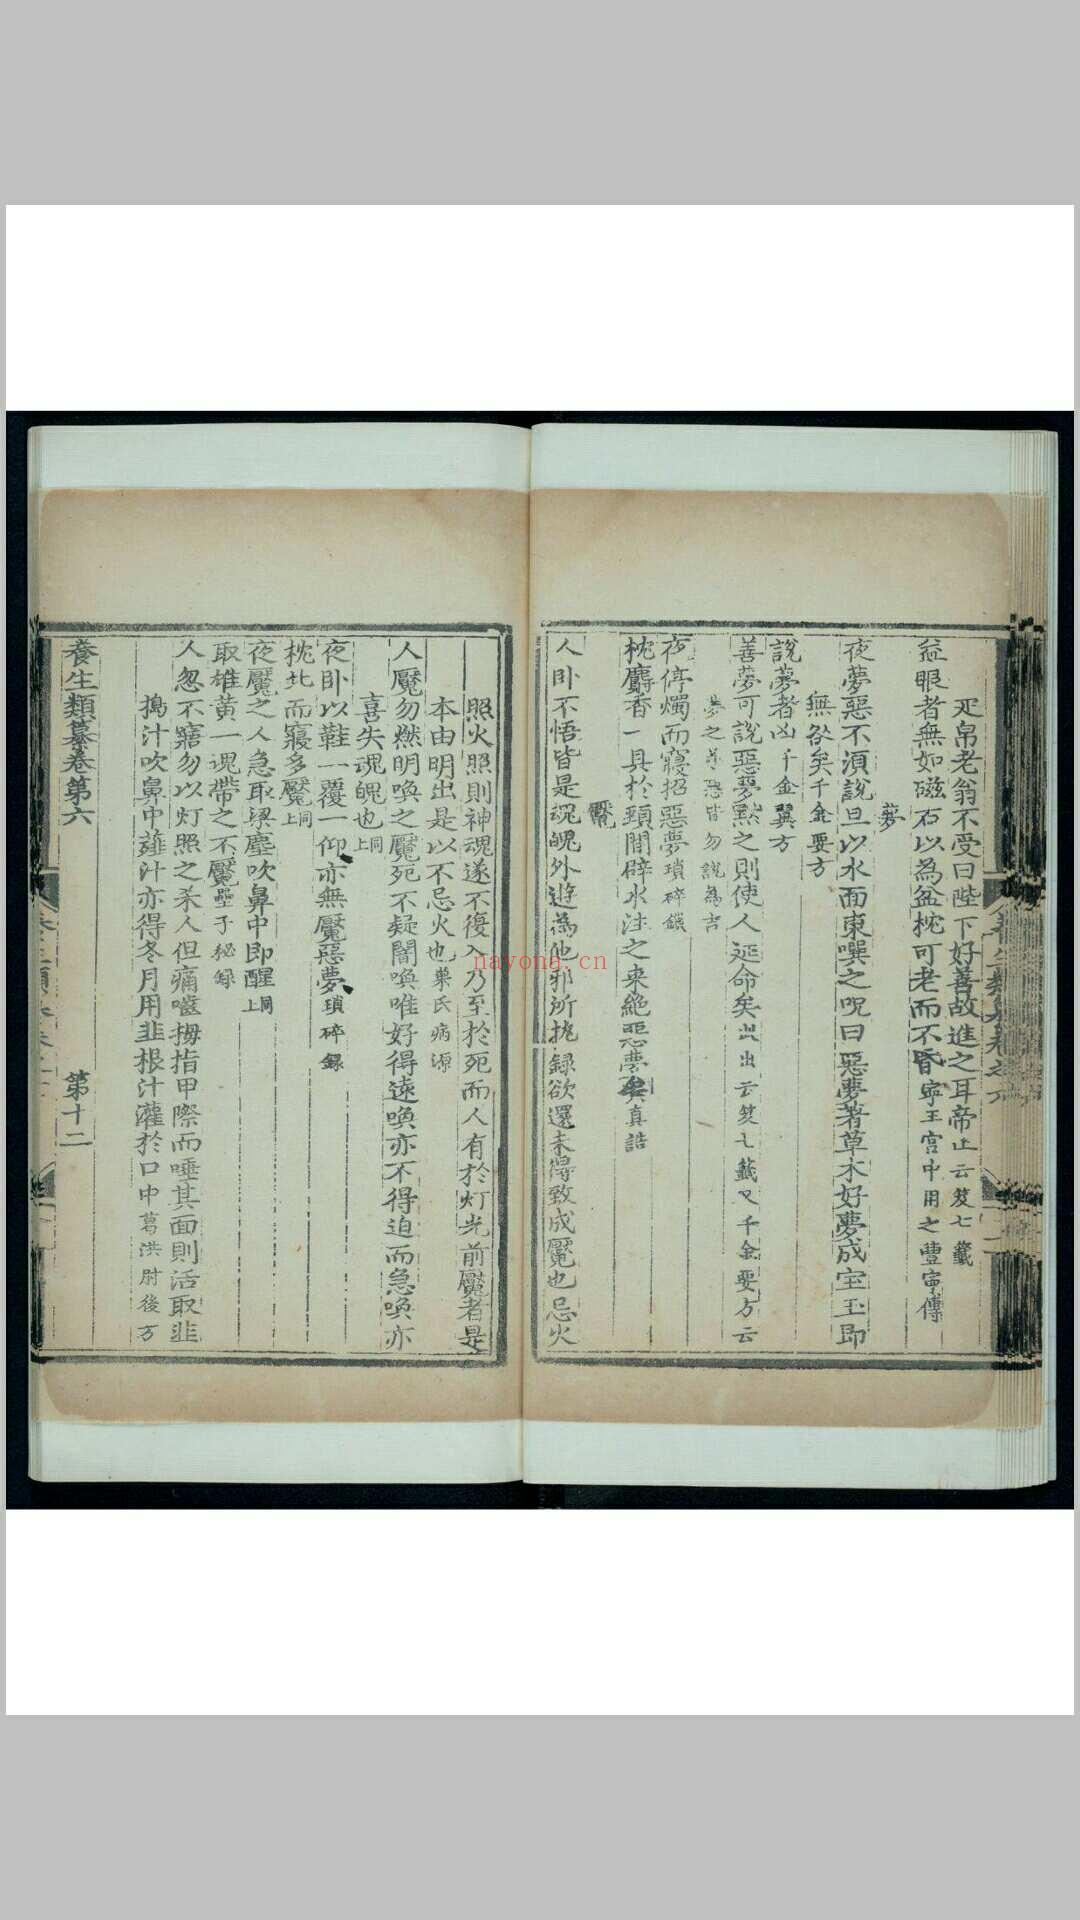 疋帛老翁不受曰陛下好善故進之耳帝止云笈七籤
益眼者無如磁石以為盆枕可老而不昏寧王宮中用之豐寧傳
夢
夜夢惡不湏說旦以水面東噀之呪曰惡夢著草木好夢成宝玉即
無咎矣千金要方
說夢者凶千金翼方
善夢可說惡夢黙之則使人延命矣此出云笈七籤又千金要方云
夢之善惡皆勿說為吉
夜停燭而寢招惡夢瑣碎録
枕麝香一具於頸間辟水注之来絶惡夢矣真誥
魘
人卧不悟皆是魂魄外遊為他邪所執録欲還未得致成魘也忌火
照火照則神魂遂不復入乃至於死而人有於灯光前魘者是
本由明出是以不忌火也巢氏病源
人魘勿燃明喚之魘死不疑闇喚唯好得遠喚亦不得迫而急喚亦
喜失魂魄也同上
夜卧以鞋一覆一仰亦無魘惡夢瑣碎録
枕北而寢多魘同上
夜魘之人急取梁塵吹鼻中即醒同上
取雄黄一塊帶之不魘壘子秘録
人忽不寤勿以灯照之杀人但痛嚙拇指甲際而唾其面則活取韭
搗汁吹鼻中薤汁亦得冬月用韭根汁灌於口中葛洪尉後方
養生類纂卷第六
第十二
nayona.cn